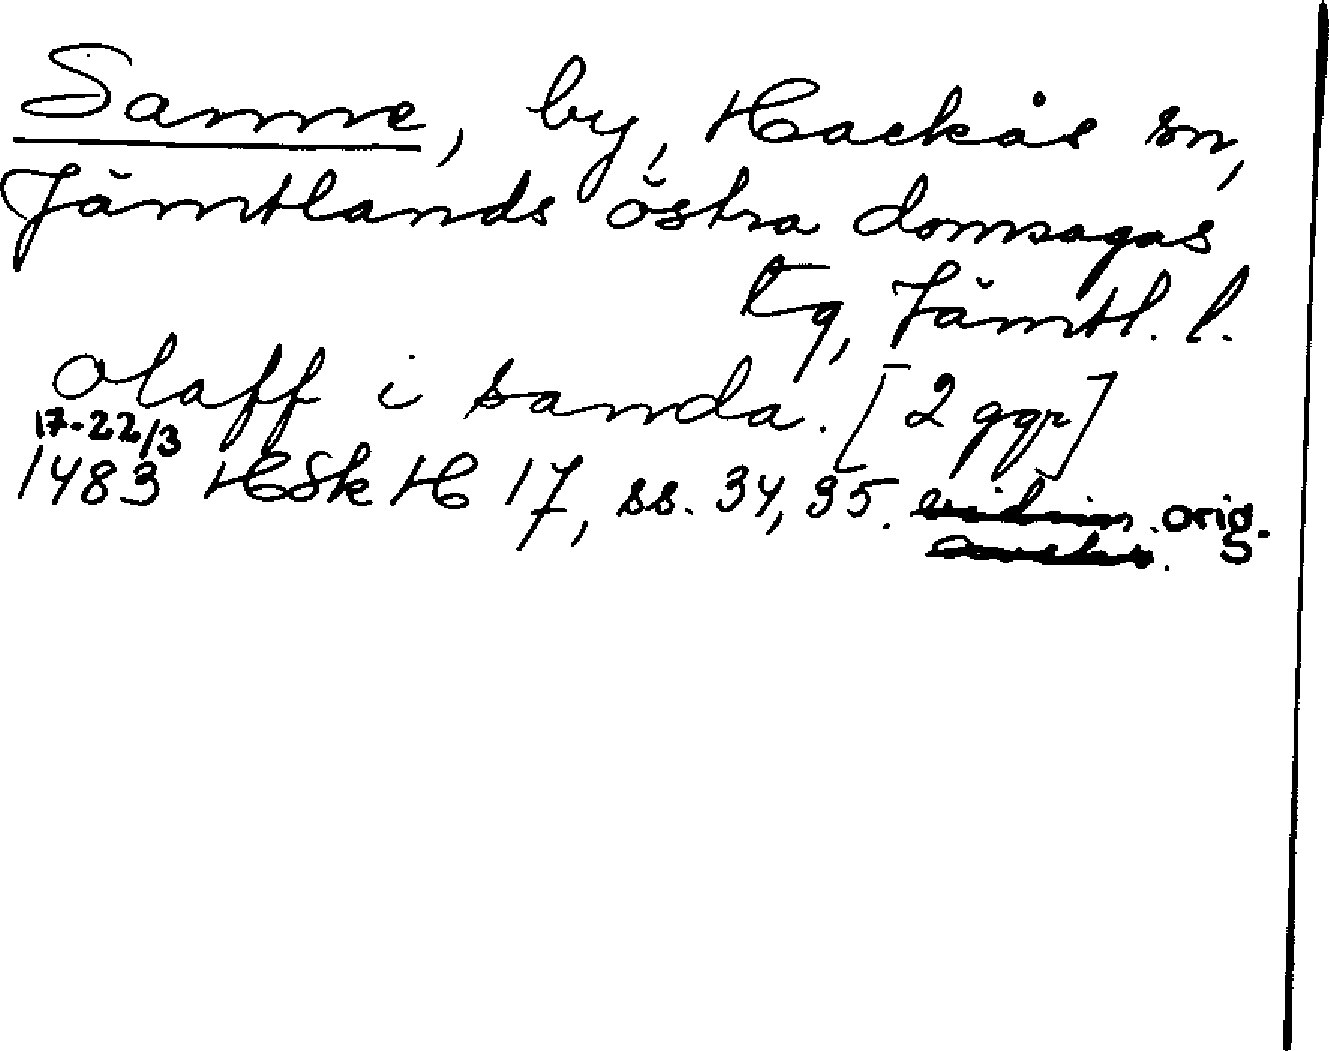 Sanne, by, Hackås sn,
Jämtlands östra domsagas
tg, Jämtl. l.
Olaff i sanda. [2 ggr]
17-22/3
1483 HSkH 17, ss. 34, 35. orig.